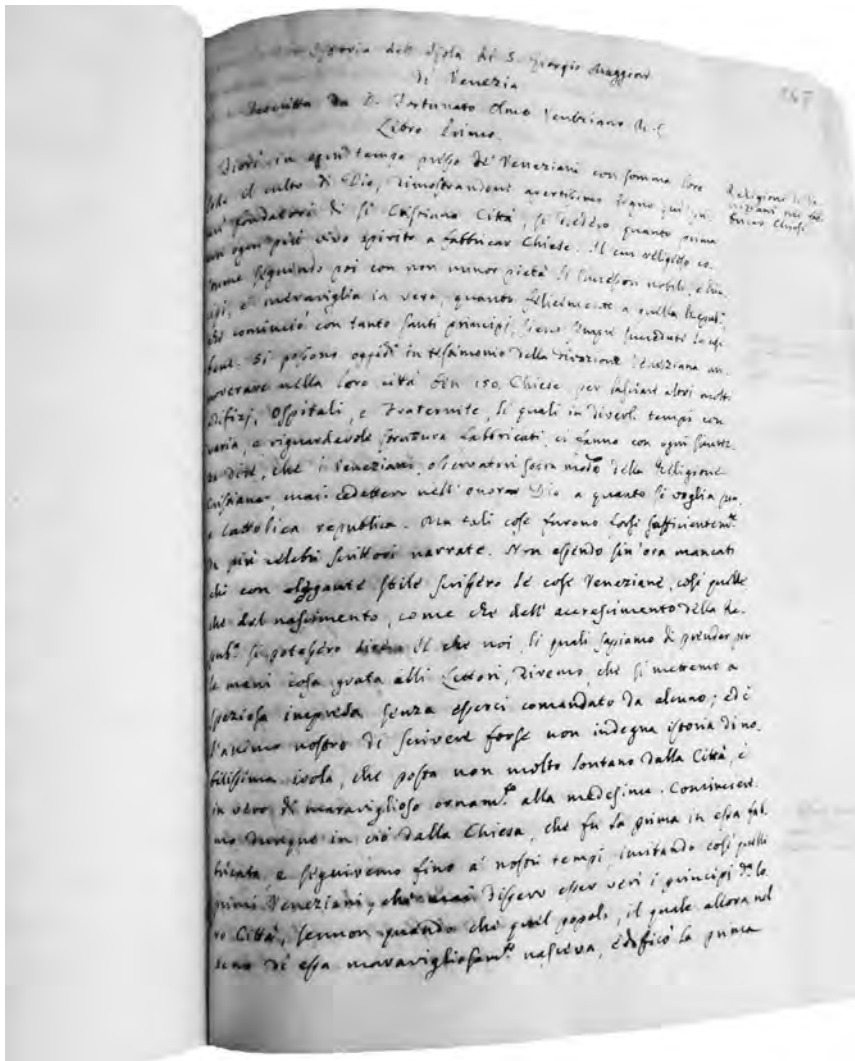 Istoria dell'Isola di S. Giorgio Maggiore
di Venezia
Descritta da D. Fortunato Olmo Veneziano
Libro Primo.
in ogni tempo presso de' Veneziani con somma loro
lode il culto di Dio, dimostrandoni apertissimo segno que'
fondatori di sì Cristiana Città, si diedero quanto prima
con ogni più vivo spirito a fabbricar Chiese. Il cui religioso co-
stume seguendo poi con non minor pietà li successori nobili, e
è meraviglia in vero, quanto felicemente a quella Repub.
che cominciò con tanto santi principj, sieno sempre succedute le
Si possono oggidì in testimonio della divozione Veneziana an-
noverare nella loro città ben 150. Chiese, per lasciare altri molti
edifizj, Ospitali, e Fraternite, li quali in diversi tempi con
varia, e riguardevole struttura fabbricati ci fanno con ogni
dire, che i Veneziani, osservatori sopra modo della Religione
Cristiana, mai cedettero nell'onorar Dio a quanto si voglia
e Cattolica republica. Ma tali cose furono forsi sufficientem.te
da più celebri scrittori narrate. Non essendo sin'ora mancati
chi con elegante stile scrissero le cose Veneziane, così quelle
che del nascimento, come che dell'accrescimento della Re-
pub.a si potessero Il che noi, li quali sapiamo di prender per
le mani cosa grata alli Lettori, diremo, che si mettemo a
speziosa impresa senza esserci comandato da alcuno; ed è
l'animo nostro di scrivere forse non indegna istoria di no-
bilissima isola, che posta non molto lontano dalla Città, è
in vero di maraviglioso ornam.to alla medesima. Comincere-
mo dunque in ciò dalla Chiesa, che fu la prima in essa fab-
bricata, e seguiremo fino a' nostri tempi, imitando così quelli
primi Veneziani, che mai dissero esser veri i principj da lo-
ro Città, sennon quando che quel popolo, il quale allora nel
seno di essa maravigliosam.te nasceva, edificò la prima
Religione de Ve-
neziani nel fab-
bricar Chiese